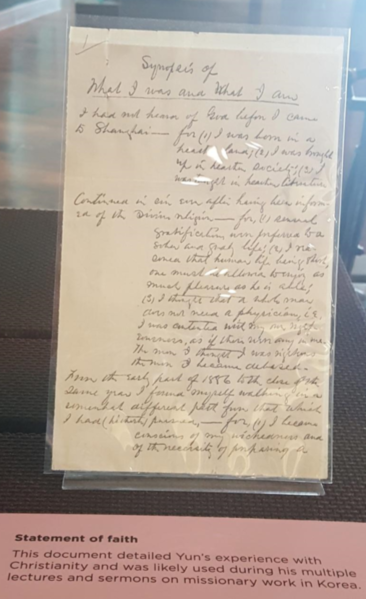 1
Synopsis of
What I was and What I am
I had not heard of God before I came
to Shanghai — for (1) I was born in a
heathen land; (2) I was brought
up in heathen society; (3) I
was taught in heathen literature.
Continued in sin even after being inform
ed of the Divine religion — for, (1) sensual
gratification was preferred to a
sober and godly life; (2) I rea
soned that human life being short,
one must be allowed to enjoy as
much pleasure as he is able;
(3) I thought that a whole man
does not need a physician, i.e.
I was contented with my own right
eousness, as if there were any in me.
The more I thought I was righteous
the more I became debased.
From the early part of 1886 to the close of the
same year I found myself walking in a
somewhat different path from that which
I had (hitherto) pursued, — for, (1) I became
conscious of my wickedness and
of the necessity of preparing a
Statement of faith
This document detailed Yun's experience with
Christianity and was likely used during his multiple
lectures and sermons on missionary work in Korea.